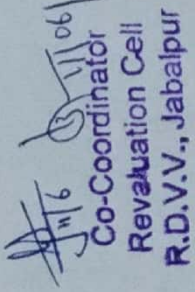 11/6
Co-Coordinator
Revaluation Cell
R.D.V.V., Jabalpur